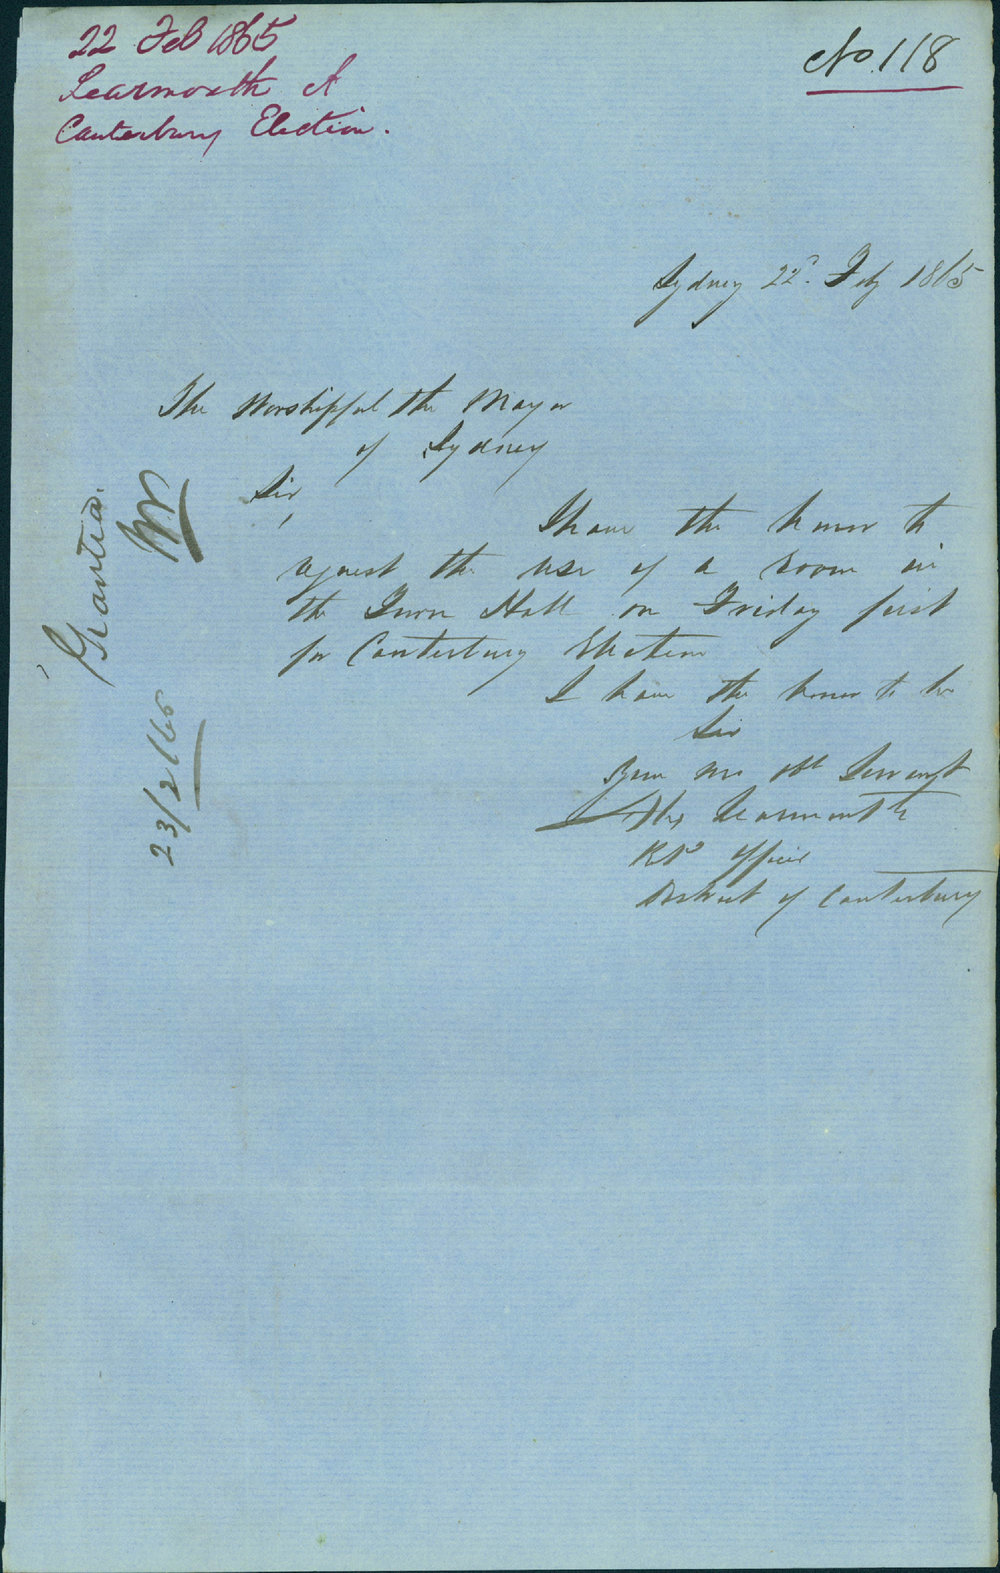 22 Feb 1865
Learmonth A
Canterbury Election.
No. 118
Sydney 22d. Feby 1865
The Worshipful the Mayor
of Sydney
Sir,
I have the honor to
request the use of a room in
the Town Hall on Friday first
for Canterbury Election
I have the honor to be
Sir
Your mo obt Servant
Alex Learmonth
Retg Officer
District of Canterbury
Granted.
23/2/65